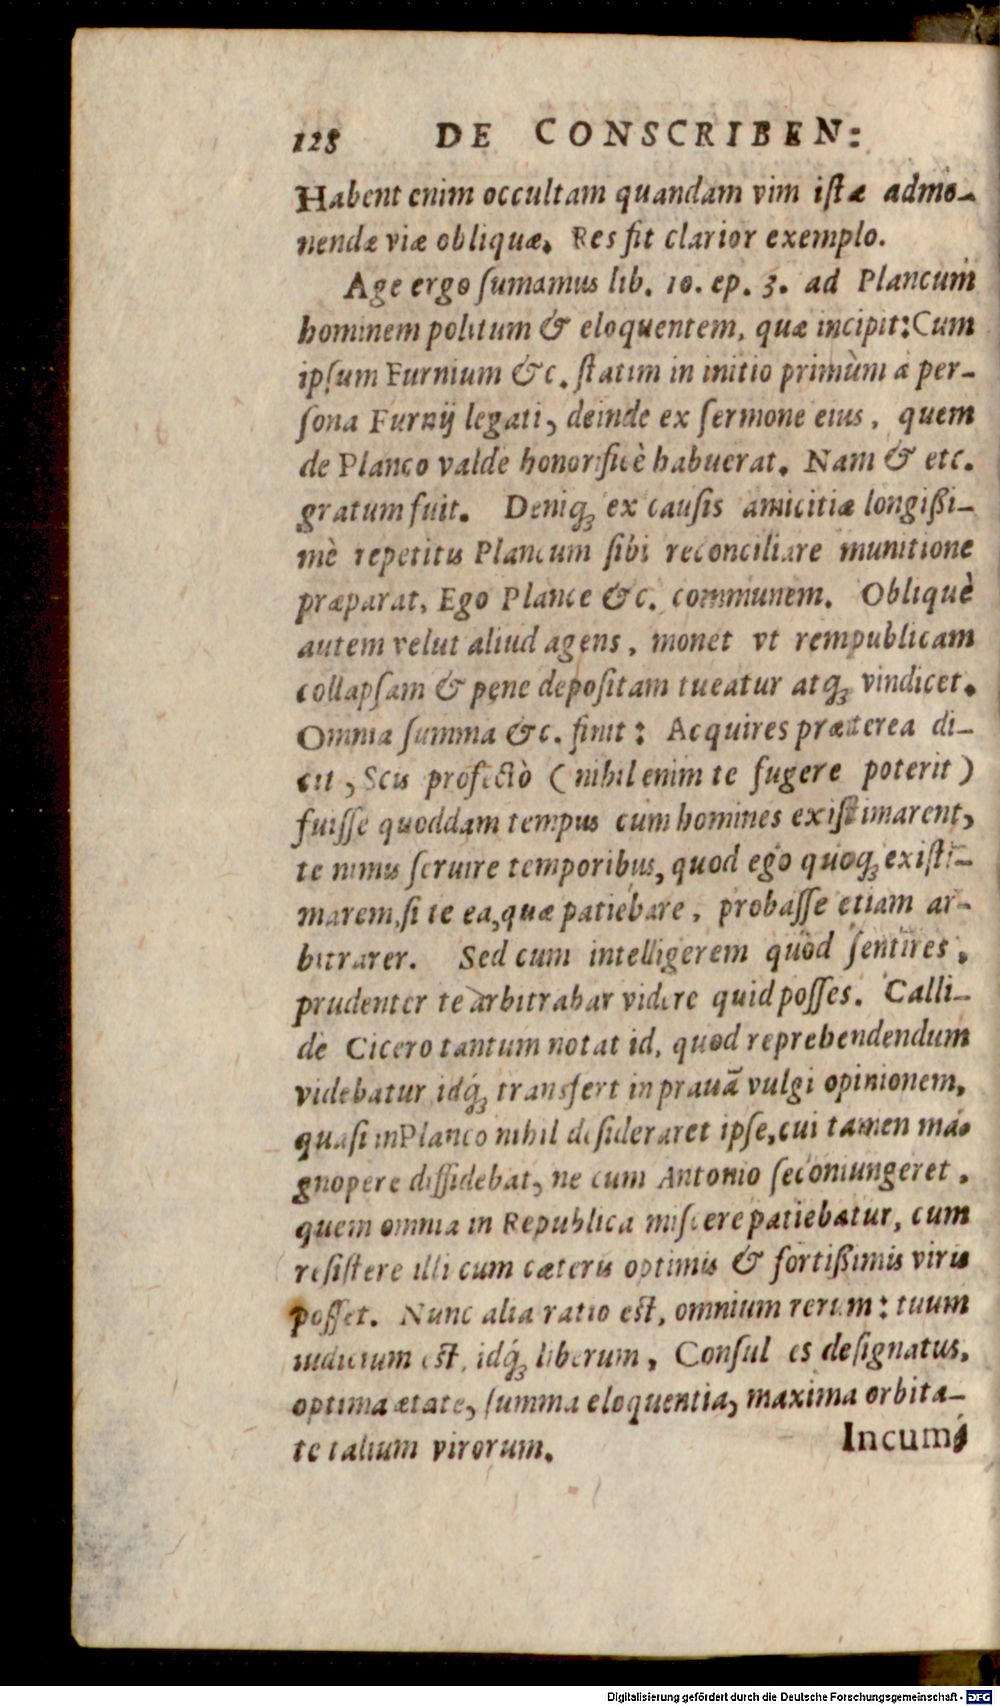 128 DE CONSCRIBEN:
Habent enim occultam quandam vim istæ admo-
nendæ viæ obliquæ. Res fit clarior exemplo.
Age ergo ſumamus lib. 10. ep. 3. ad Plancum
hominem politum & eloquentem, quæ incipit: Cum
ipſum Furnium &c. ſtatim in initio primùm a per-
ſona Furnij legati, deinde ex ſermone eius, quem
de Planco valde honorificè habuerat. Nam & etc.
gratum fuit. Deniq́ꝫ ex cauſis amicitiæ longißi-
mè repetitis Plancum ſibi reconciliare munitione
præparat, Ego Plance &c. communem. Obliquè
autem velut aliud agens, monet vt rempublicam
collapſam & pene depoſitam tueatur atqꝫ vindicet.
Omnia ſumma &c. finit: Acquires præterea di-
cit, Scis profectò (nihil enim te fugere poterit)
fuiſſe quoddam tempus cum homines existimarent,
te nimis ſeruire temporibus, quod ego quoqꝫ existi-
marem, ſi te ea, quæ patiebare, probaſſe etiam ar-
bitrarer. Sed cum intelligerem quòd ſentires,
prudenter te arbitrabar videre quid poſſes. Calli-
dè Cicero tantum notat id, quod reprehendendum
videbatur idq́ꝫ transfert in prauā vulgi opinionem,
quaſi in Planco nihil deſideraret ipſe, cui tamen ma-
gnopere diffidebat, ne cum Antonio ſe coniungeret,
quem omnia in Republica miſcere patiebatur, cum
reſiſtere illi cum cæteris optimis & fortißimis viris
poſſet. Nunc alia ratio eſt, omnium rerum: tuum
iudicium eſt, idq́ꝫ liberum, Conſul es deſignatus,
optima ætate, ſumma eloquentia, maxima orbita-
te talium virorum.
Incum-
Digitalisierung gefördert durch die Deutsche Forschungsgemeinschaft - DFG